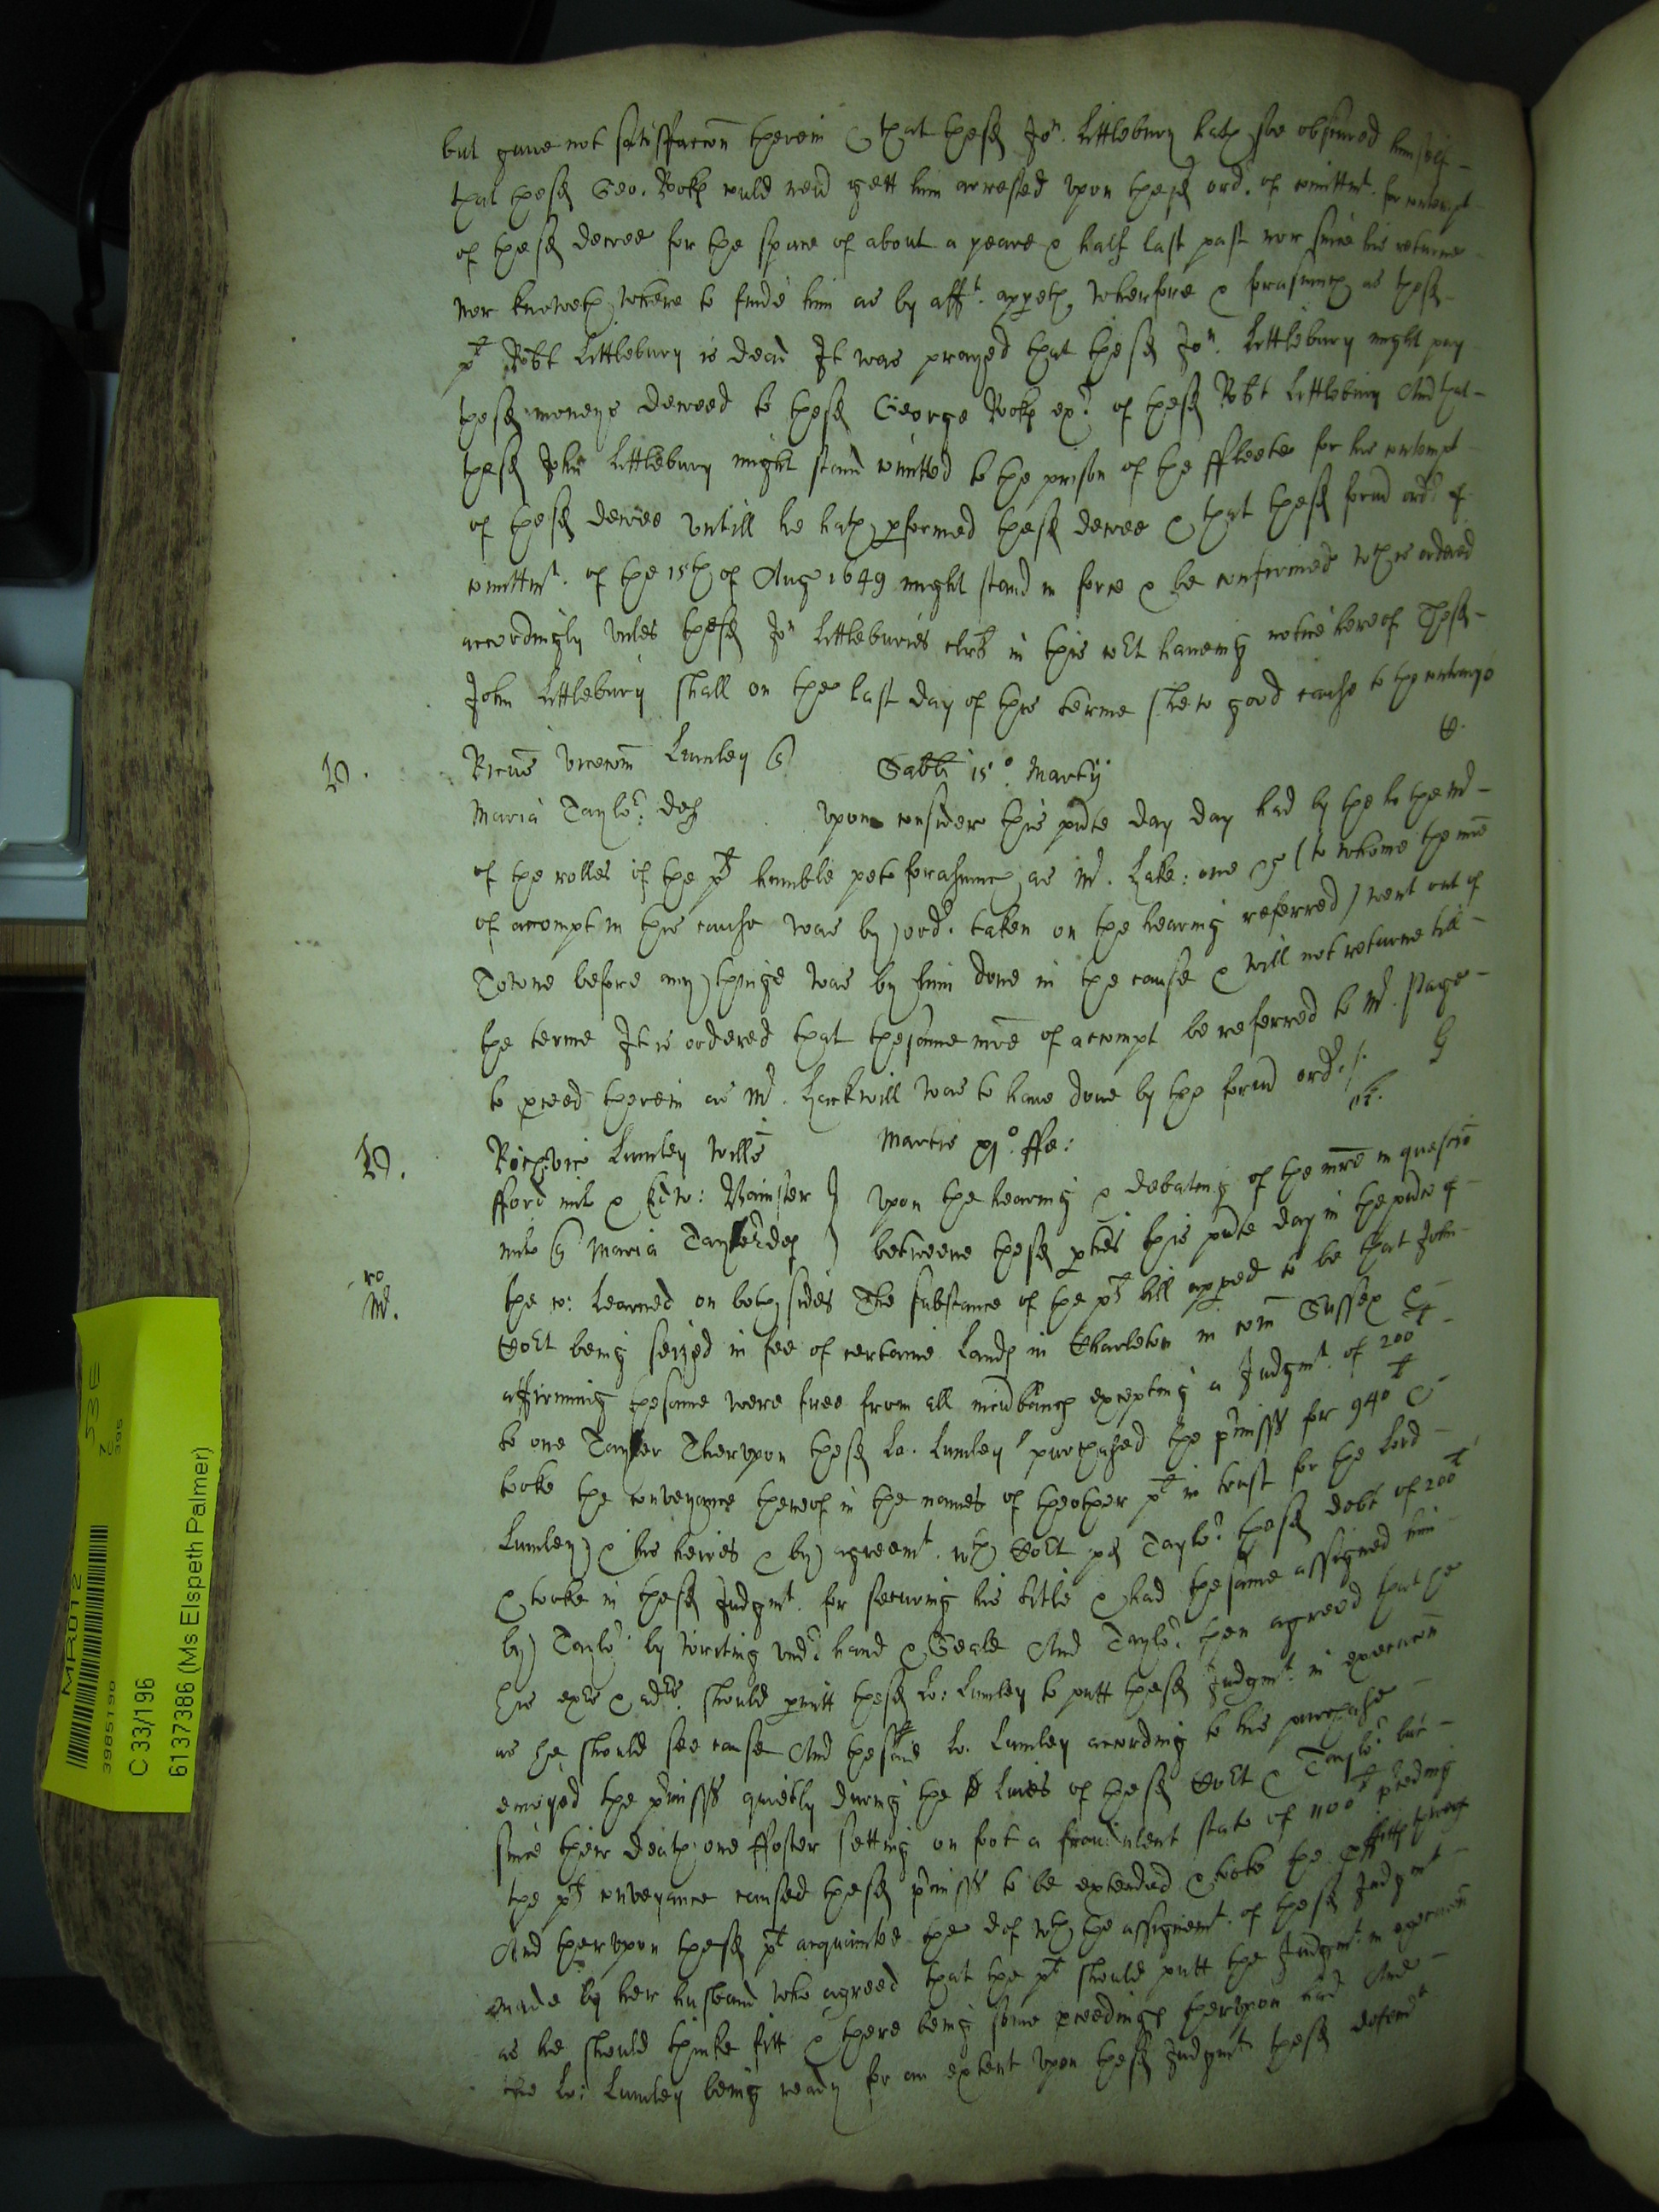 but gave not satisfaccōn therein & that the sd Jon. Littlebury hath soe obscured himself
that the sd Geo. Rooke could nevr gett him arrested upon the sd ord. of comittmt. for contempt
of the sd decree for the space of about a yeare & half last past nor since his returne
nor knoweth where to finde him as by afft. appeth wherfore & forasmuch as the sd
plt Robt Littlebury is dead It was prayed that the sd Jon. Littlebury might pay
the sd moneys decreed to the sd George Rooke exr of the sd Robt Littlebury And that
the sd John Littlebury might stand comitted to the prison of the ffleete for his contempt
of the sd decree untill he hath pformed the sd decree & that the sd formr ordr of
comittmt. of the 15th of Aug 1649 might stand in force & be confirmed wch is ordered
accordingly unles the sd Jon Littleburies clrk in this cort haveing notice hereof The sd
John Littlebury shall on the last day of this terme shew good cause to the contrary
Ricus vicecom Lumley
Sabbti 15o Martij
Maria Taylor deft
upon consider this pnte day day had by the the Mr
of the rolles of the plt humble peto forasmuch as Mr. Hake: one (to whome the mre
of accompt in this cause was by ordr. taken on the hearing referred) went out of
Towne before any thinge was by him done in the cause & will not returne till
the terme It is ordered that the same mre of accompt be referred to Mr. Page
to pceed therein as Mr. Hackwill was to have done by the formr ordr
Rich vic Lumley Willm
Martis ffe:
fford mil & Edw:
upon the hearing & debating of the mre in quescōn
mil Maria Taylor def
betweene the sd pties this pnte day in the pnce of
the co: learned on both sides The substance of the plt bill appeed to be that John
Holt being seized in fee of certaine Land in Charleton in com Sussex &
affirming the same were free from all incumbrance excepting a Judgmt. of 200li
to one Tayler Therupon the sd Lo. Lumley purchased the pmisses for 940li &
tooke the conveyance thereof in the names of the other plt in trust for the Lord
Lumley & his heires & by agreemt. wth Holt pd Taylor the sd debt of 200li
& tooke in the sd Judgmt. for securing his title & had the same assigned him
by Taylor. by writing undr hand & Seale And Taylor then agreed that he
his exrs & adrs. should pmitt the sd Lo: Lumley to putt the sd Judgmt. in execucōn
as he should see cause And the said Lo. Lumley according to his purchase
enioyed the pmisses quietly during the lives of the sd Holt & Taylor but
since their death one ffoster setting on foot a fraudulent state of 1100li pceding
the plt conveyance caused the sd pmisses to be extended & tooke the pfitts thereof
And therupon the sd plt acquainted the def wth the assignemt. of the sd Judgmt
made by her husband who agreed that the plt should putt the Judgmt. in execucōn
as he should thinke fitt & there being some pceedings therupon had And
the Lo: Lumley being ready for an extent upon the sd Judgmt the sd defendt
MR012
39851
C 33/196
6137386 (Ms Elspeth Palmer)